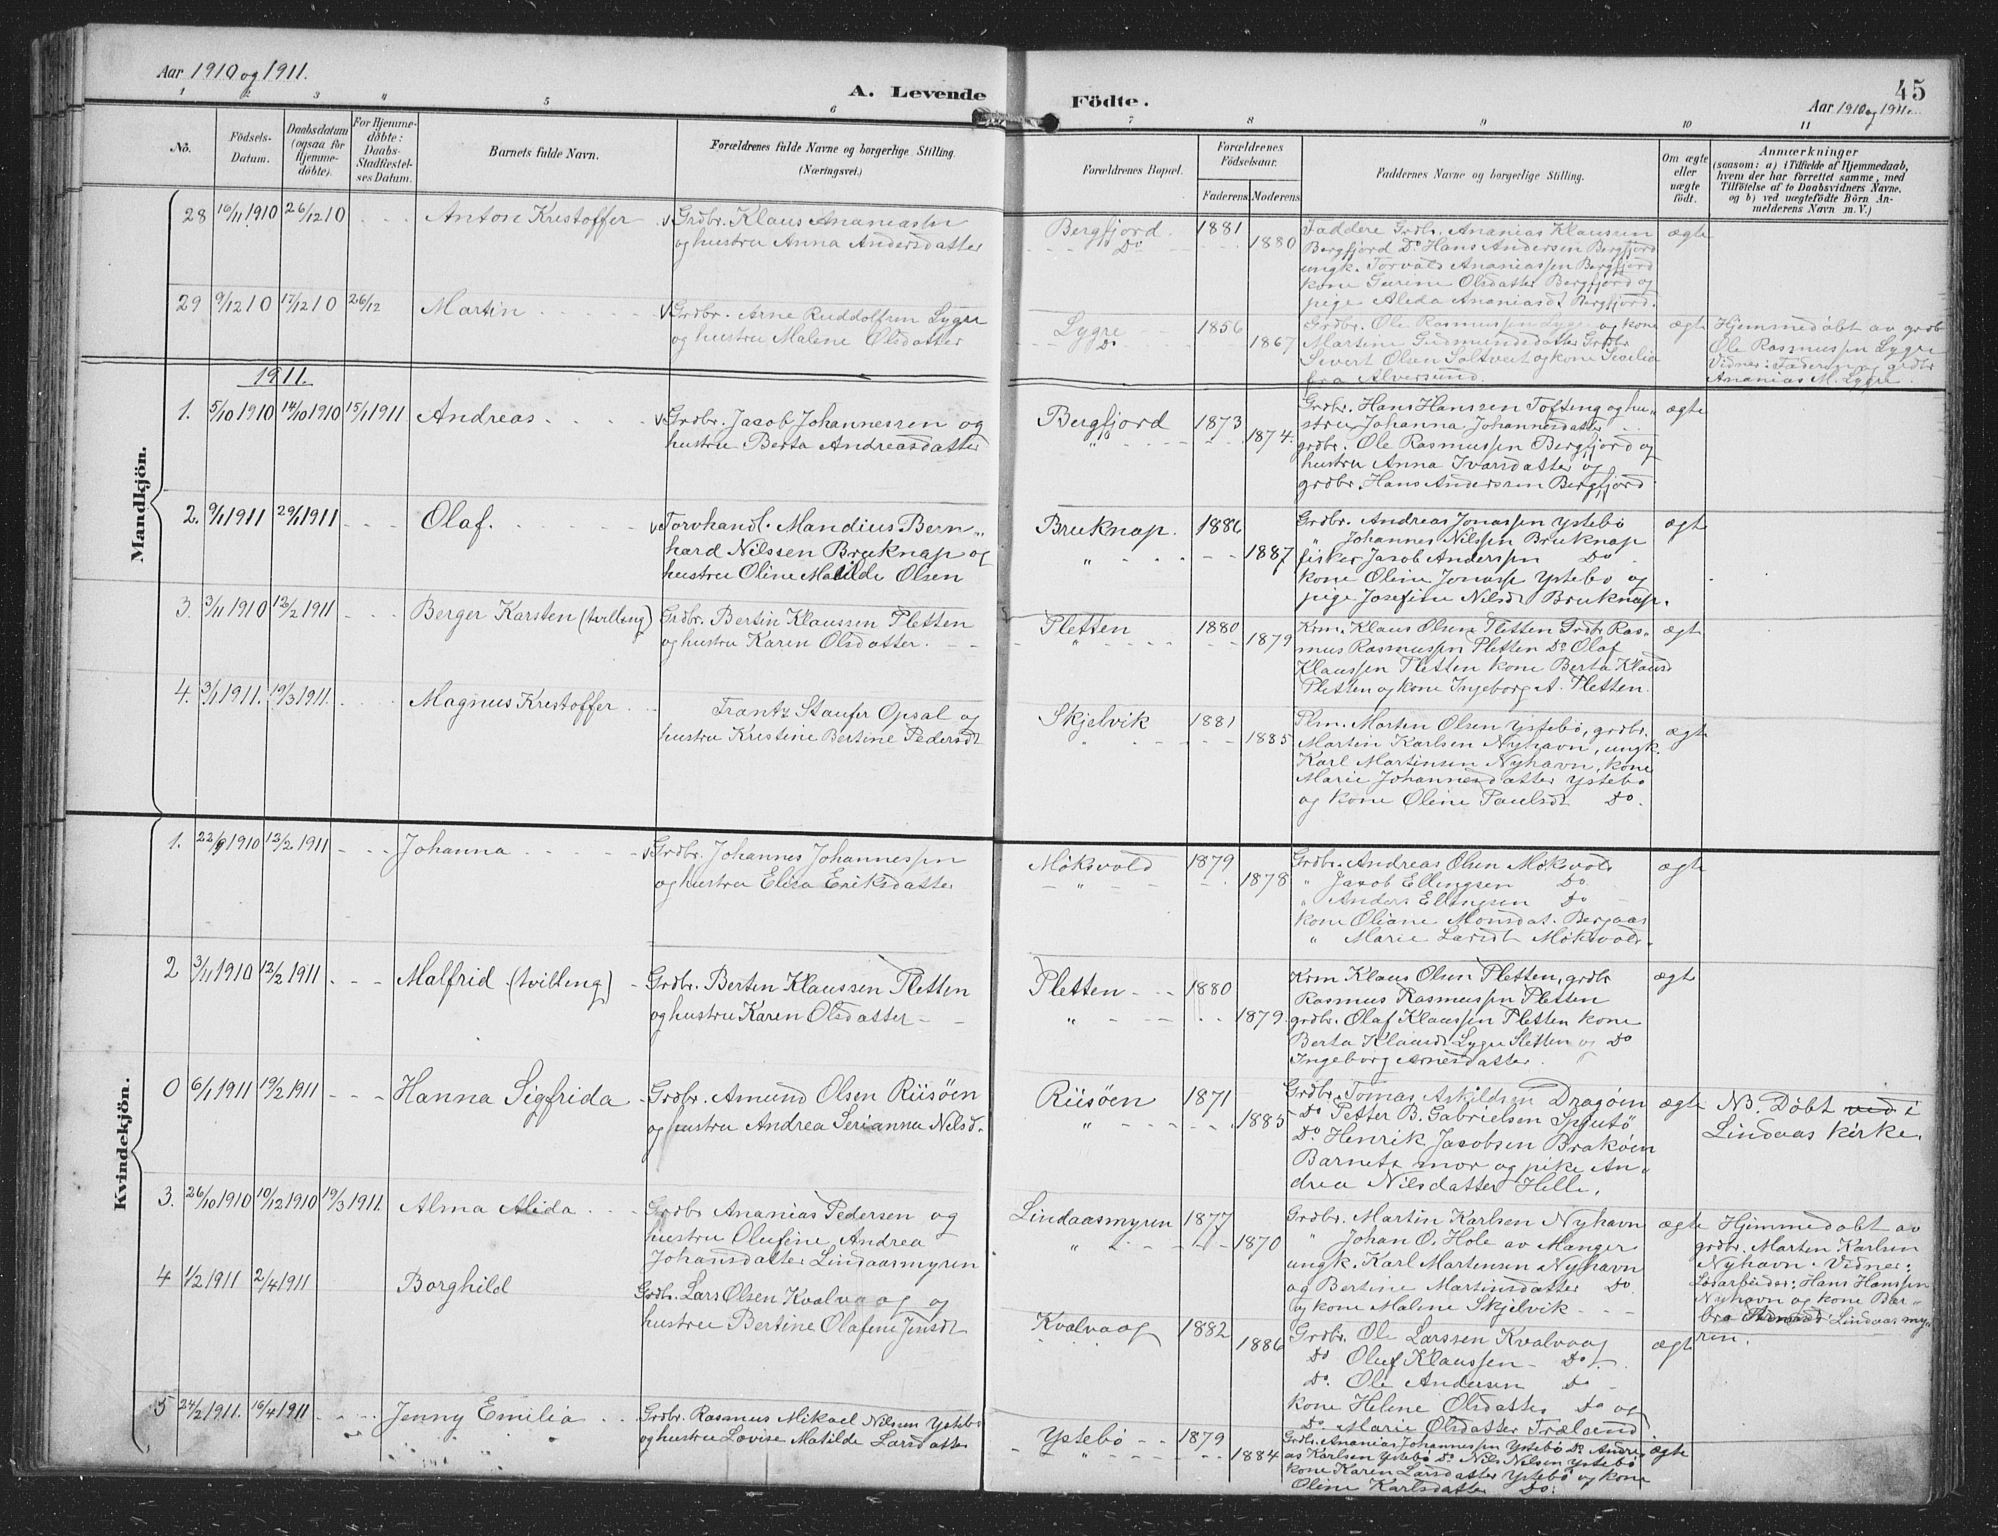 Aar 1910 og 1911.
A. Levende Födte.
45
Aar 1910 og 1911.
1 2 3 4 5 6 7 8 9 10 11
No.
Födsels-Datum.
Daabsdatum (ogsaa for Hjemme-döbte).
For Hjemme-döbte: Daabs-Stadfæstel-ses Datum.
Barnets fulde Navn.
Forældrenes fulde Navne og borgerlige Stilling.
(Næringsvei.)
Forældrenes Bopæl.
Forældrenes Födselsaar.
Faderens. Moderens.
Faddernes Navne og borgerlige Stilling.
Om ægte eller uægte födt.
Anmærkninger
(saasom: a) i Tilfælde af Hjemmedaab,
hvem der har forrettet samme, med
Tilföielse af to Daabsvidners Navne.
og b) ved uægtefödte Börn An-
melderens Navn m. V.)
28 16/11 1910 26/12 10 Anton Krestoffer
Grdbr. Klaus Ananiassen
og hustru Anna Andersdatter
Bergfjord Do
1881 1880
Faddere Grdbr. Ananias Klaussen
Bergfjord Do Hans Andersen Bergfjord
ungk. Torvald Ananiassen Bergfjord
kone Gurine Olsdatter Bergfjord og
pige Alida Ananiasdt Bergfjord.
ægte
29 9/12 10 17/12 10 26/12 Martin
Grdbr. Arne Ruddolfsen Lygre
og hustru Malene Olsdatter
Lygre Do
1856 1867
Grdbr. Ole Rasmussen Lygre og kone
Martine Gudmundsdatter Grdbr
Sivert Olsen Saltveit og kone Secilia
fra Alversund.
ægte
Hjemmedøbt av grdbr
Ole Rasmussen Lygre
Vidner: Faderen og grdbr
Ananias M. Lygre
1911.
Mandkjön.
1. 5/10 1910 14/10 1910 15/1 1911 Andreas
Grdbr. Jacob Johannessen og
hustru Berta Andreasdatter
Bergfjord "
1873 1874.
Grdbr. Hans Hanssen Tofteng og hu-
stru Johanna Johannesdatter
grdbr. Ole Rasmussen Bergfjord og
hustru Anna Ivarsdatter og
grdbr. Hans Anderssen Bergfjord
ægte
2. 9/1 1911 29/1 1911 Olaf.
Torvhandl. Mandius Bern-
hard Nilssen Bruknap og
hustru Oline Matilde Olsen
Bruknap. "
1886 1887
Grdbr. Andreas Jonassen Ystebö
" Johannes Nilssen Bruknap
fisker Jacob Anderssen Do
kone Oline Jonasse Ystebo og
pige Josefine Nilsdt Bruknap.
ægte
3. 3/11 1910 12/2 1911 Berger Karsten (tvilling)
Grdbr. Bertin Klaussen Pletten
og hustru Karen Olsdatter.
Pletten "
1880 1879
Krm. Klaus Olsen Pletten Grdbr Ras-
mus Rasmussen Pletten Do Olaf
Klaussen Pletten kone Berta Klausd
Pletten og kone Ingeborg A. Pletten.
ægte
4. 3/1 1911. 19/3 1911. Magnus Krestoffer
Frantz Staufer Opsal og
hustru Kristine Bertine Pedersdt
Skjelvik "
1881 1885
Plm. Martin Olsen Ystebö, grdbr.
Martin Karlsen Nyhavn, ungk.
Karl Martinsen Nyhavn, kone
Marie Johannesdatter Ystebö
og kone Oline Paulsdt Do.
ægte
Kvindekjön.
1. 22/9 1910 12/2 1911 Johanna
Grdbr. Johannes Johannessen
og hustru Elisa Eriksdatter
Möksvold "
1879 1878
Grdbr. Andreas Olsen Möksvold
" Jacob Ellingsen Do
" Anders Ellingsen Do
kone Oliane Monsdat. Bergaas
" Marie Larsdt Möksvold.
ægte
2 3/11 1910 12/2 1911 Malfrid (tvilling)
Grdbr. Berten Klaussen Pletten
og hustru Karen Olsdatter
Pletten "
1880 1879.
Krm Klaus Olsen Pletten, grdbr
Rasmus Rasmussen Pletten
grdbr. Olaf Klaussen Pletten kone
Berta Klausdt. Lygre Pletten og Do
Ingeborg Arnesdatter.
ægt
0 6/1 1911 19/2 1911 Hanna Sigfrida
Grdbr. Amund Olsen Riisöen
og hustru Andrea Serianna Nilsd.
Riisöen "
1871 1885
Grdbr. Tomas Askildsen Dragöen
Do Petter B. Gabrielsen Sputö
Do Henrik Jacobsen Braköen
Barnets mor og pike An-
drea Nilsdatter Hille.
ægte
NB. Döbt ved i
Lindaas kirke.
3. 26/10 1910 10/12 1910 19/3 1911. Alma Alida
Grdbr Ananias Pedersen og
hustru Olufine Andrea
Johansdatter Lindaasmyren
Lindaasmyren "
1877 1870
Grdbr. Martin Karlsen Nyhavn
" Johan O. Hole av Manger
ungk. Karl Martensen Nyhavn
og Bertine Martinsdatter Do
og kone Malene Skjelvik
ægte
Hjimmedøbt av
grdbr. Marten Karlsen
Nyhavn. Vidner:
Løsarbeider: Hans Hanssen
Nyhavn og kone Bar-
bra Lindaasmy-
ren.
4 1/2 1911 2/4 1911 Borghild
Grdbr. Lars Olsen Kvalvaag og
hustru Bertine Olafine Jensdt
Kvalvaag
1882 1886
Grdbr. Ole Larssen Kvalvaag
Do Oluf Klaussen Do
Do. Ole Andersen Do
kone Helene Olsdatter Do og
Do. Marie Olsdatter Træland.
ægte
5 24/2 1911. 16/4 1911 Jenny Emilia
Grdbr. Rasmus Mikael Nilsen Ystebö
og hustru Lovise Matilde Larsdatter
Ystebö "
1879 1884
Grdbr. Ananias Johannessen Ystebö Do Andre-
as Karlsen Ystebö Do Nils Nilsen Ystebö
kone Karen Larsdatter Ystebö og kone
Oline Karlsdatter Do.
ægte